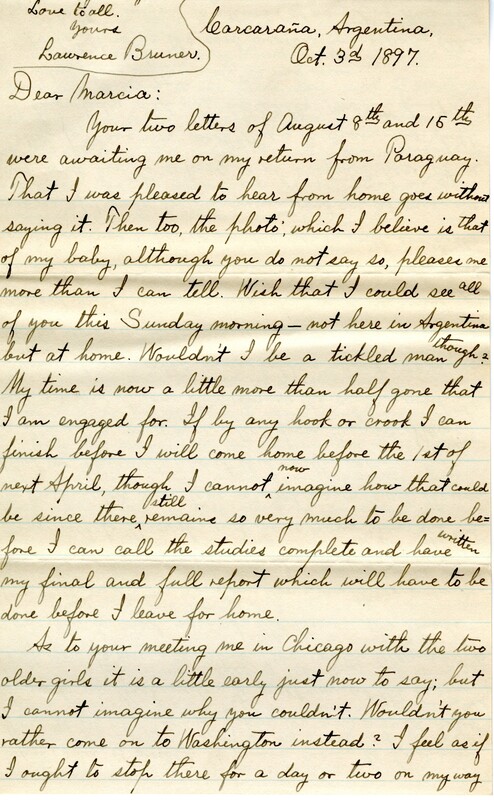 Love to all.
Yours
Lawrence Bruner.
Carcaraña, Argentina,
Oct. 3d 1897.
Dear Marcia:
Your two letters of August 8th and 15th
were awaiting me on my return from Paraguay.
That I was pleased to hear from home goes without
saying it. Then too, the photo', which I believe is that
of my baby, although you do not say so, pleases me
more than I can tell. Wish that I could see all
of you this Sunday morning – not here in Argentina
but at home. Wouldn't I be a tickled man though?
My time is now a little more than half gone that
I am engaged for. If by any hook or crook I can
finish before I will come home before the 1st of
next April, though I cannot now imagine how that could
be since there still remains so very much to be done be=
fore I can call the studies complete and have written
my final and full report which will have to be
done before I leave for home.
As to your meeting me in Chicago with the two
older girls it is a little early just now to say; but
I cannot imagine why you couldn't. Wouldn't you
rather come on to Washington instead? I feel as if
I ought to stop there for a day or two on my way